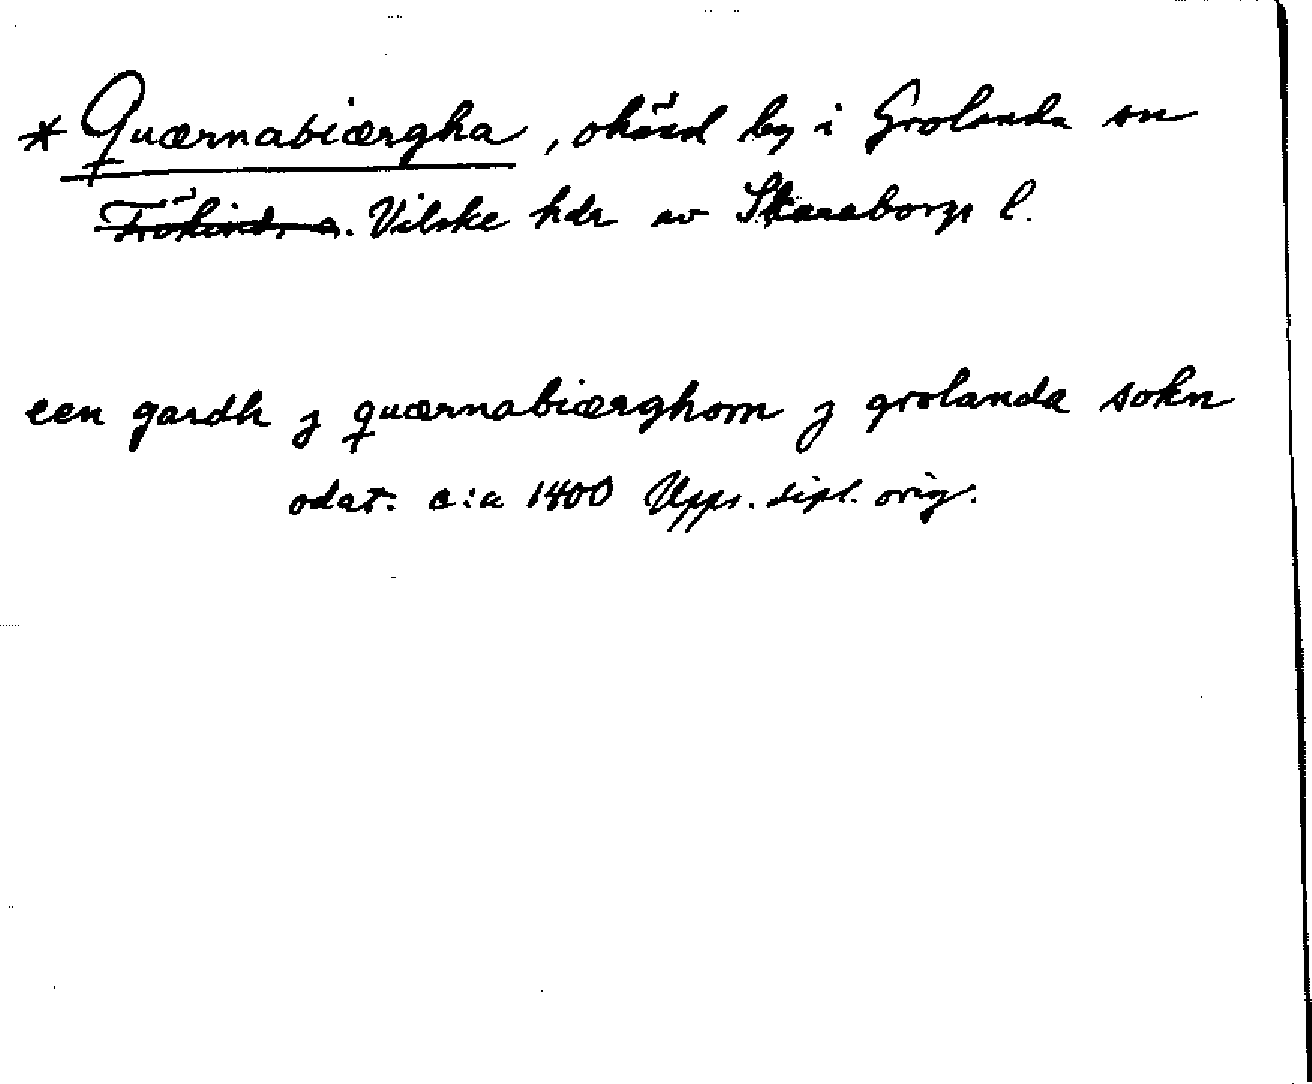 * Quærnabiærgha, okänd by i Grolanda sn
Frökinds. Vilske hdr av Skaraborgs l.
een gardh j quærnabiærghom j grolanda sokn
odat. c:a 1400 Upps. dipl. orig.